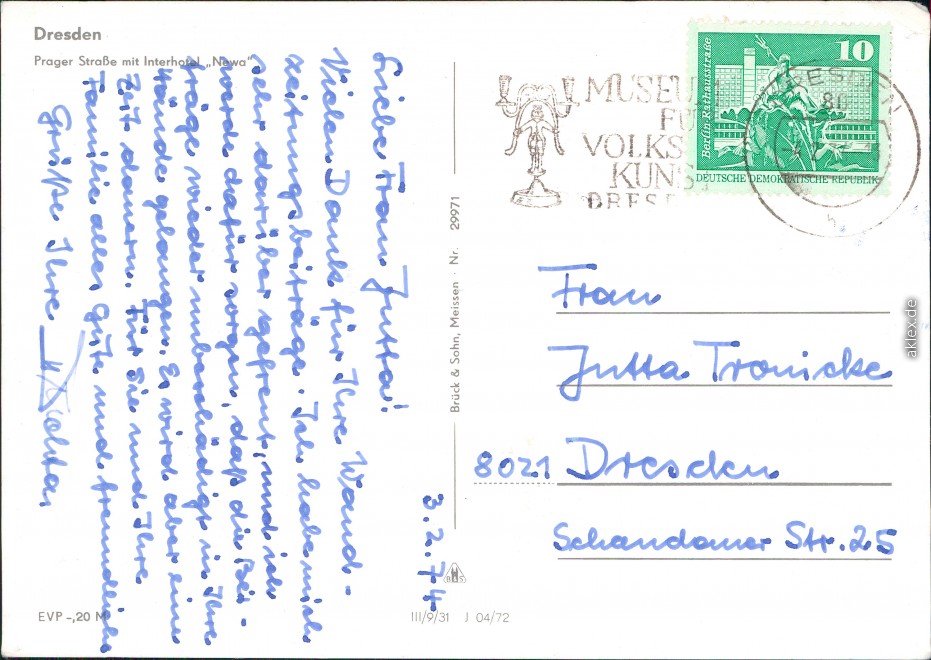 Dresden
Prager Straße mit Interhotel „Newa"
Liebe Frau Jutta!
Vielen Dank für Ihre Wand-
zeitungsbeiträge. Ich habe mich
sehr darüber gefreut, und ich
werde dafür sorgen, daß die Bei-
träge wieder unbeschädigt in Ihre
Hände gelangen. Es wird aber eine
Zeit dauern. Für Sie und Ihre
Familie alles Gute und freundliche
Grüße Ihre
3.2.74
EVP -,20 M
III/9/31 J 04/72
Brück & Sohn, Meissen · Nr. 29971
MUSEUM
FÜ
VOLKS
KUNST
DRES
DRESDEN
10
Berlin Rathausstraße
DEUTSCHE DEMOKRATISCHE REPUBLIK
Frau
Jutta Tronicke
8021 Dresden
Schandauer Str. 25
aklex.de